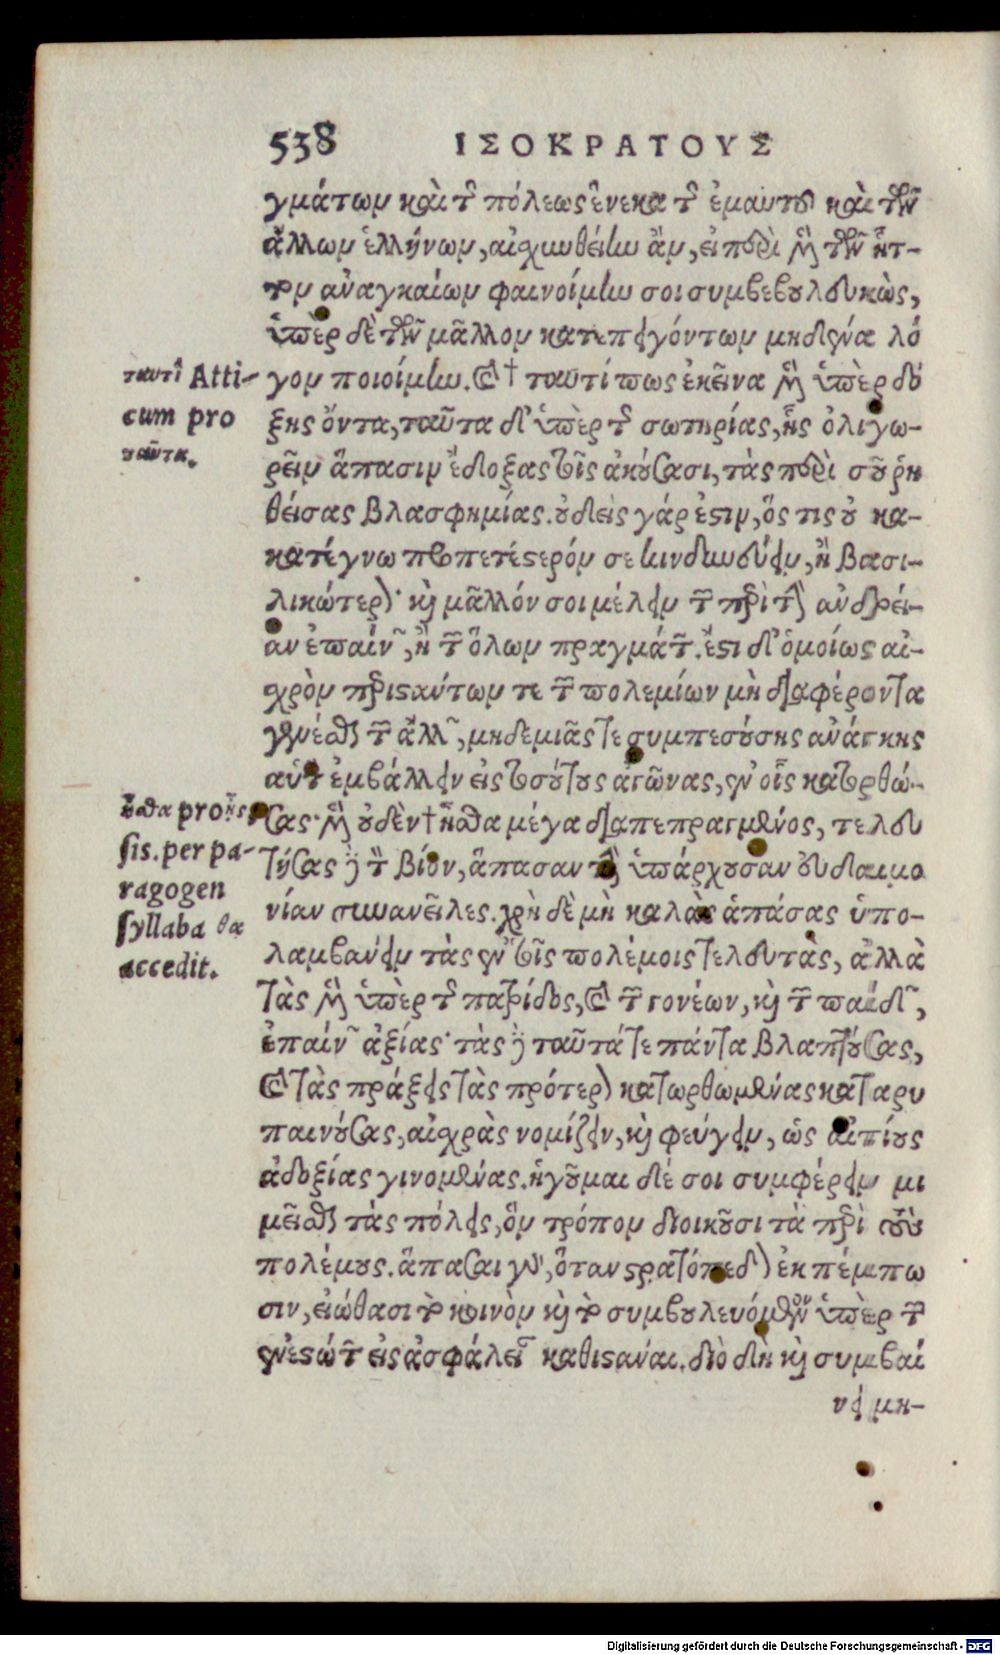 538 ΙΣΟΚΡΑΤΟΥΣ
γμάτων καὶ τῆς πόλεως ἕνεκα τῆς ἐμαυτοῦ καὶ τῶν
ἄλλων ἑλλήνων, αἰσχυνθείην ἂν, εἰ περὶ μὲν τῶν ἧτ-
τον ἀναγκαίων φαινοίμην σοι συμβεβουλευκὼς,
ὑπὲρ δὲ τῶν μᾶλλον κατεπειγόντων μηδένα λό
γον ποιοίμην. καὶ † ταυτί πως ἐκεῖνα μὲν ὑπὲρ δό
ξης ὄντα, ταῦτα δ' ὑπὲρ τῆς σωτηρίας, ἧς ὀλιγω-
ρεῖν ἅπασιν ἔδοξας τοῖς ἀκούσασι, τὰς περὶ σοῦ ῥη
θείσας βλασφημίας. οὐδεὶς γάρ ἐστιν, ὅς τις οὐ κα-
κατέγνω προπετέστερόν σε κινδυνεύειν, ἢ βασι-
λικώτερον· καὶ μᾶλλόν σοι μέλειν τῶν περὶ τὴν ἀνδρεί-
αν ἐπαίνων, ἢ τῶν ὅλων πραγμάτων. ἔστι δ' ὁμοίως αἰ-
σχρὸν περιστάντων τε τῶν πολεμίων μὴ διαφέροντα
γενέσθαι τῶν ἄλλων, μηδεμιᾶς τε συμπεσούσης ἀνάγκης
αὑτὸν ἐμβάλλειν εἰς τοσούτους ἀγῶνας, ἐν οἷς κατορθώ-
σας· μὲν οὐδὲν † ἦσθα μέγα διαπεπραγμένος, τελευ
τήσας δὲ τὸν βίον, ἅπασαν τὴν ὑπάρχουσαν εὐδαιμο
νίαν συνανεῖλες. χρὴ δὲ μὴ καλὰς ἁπάσας ὑπο-
λαμβάνειν τὰς ἐν τοῖς πολέμοις τελευτὰς, ἀλλὰ
τὰς μὲν ὑπὲρ τῆς πατρίδος, καὶ τῶν γονέων, καὶ τῶν παίδων,
ἐπαίνων ἀξίας· τὰς δὲ ταῦτά τε πάντα βλαπτούσας,
καὶ τὰς πράξεις τὰς πρότερον κατωρθωμένας καταρυ
παινούσας, αἰσχρὰς νομίζειν, καὶ φεύγειν, ὡς αἰτίους
ἀδοξίας γινομένας. ἡγοῦμαι δέ σοι συμφέρειν μι
μεῖσθαι τὰς πόλεις, ὃν τρόπον διοικοῦσι τὰ περὶ τοὺς
πολέμους. ἅπασαι γὰρ, ὅταν στρατόπεδον ἐκπέμπω
σιν, εἰώθασι τὸ κοινὸν καὶ τὸ συμβουλευόμενον ὑπὲρ τῶν
ἐνεστώτων εἰς ἀσφάλειαν καθιστάναι. διὸ δὴ καὶ συμβαί
νει μη-
ταυτὶ Atti-
cum pro
ταῦτα.
ἦσθα pro ἦς
sis. per pa-
ragogen
syllaba θα
accedit.
Digitalisierung gefördert durch die Deutsche Forschungsgemeinschaft - DFG